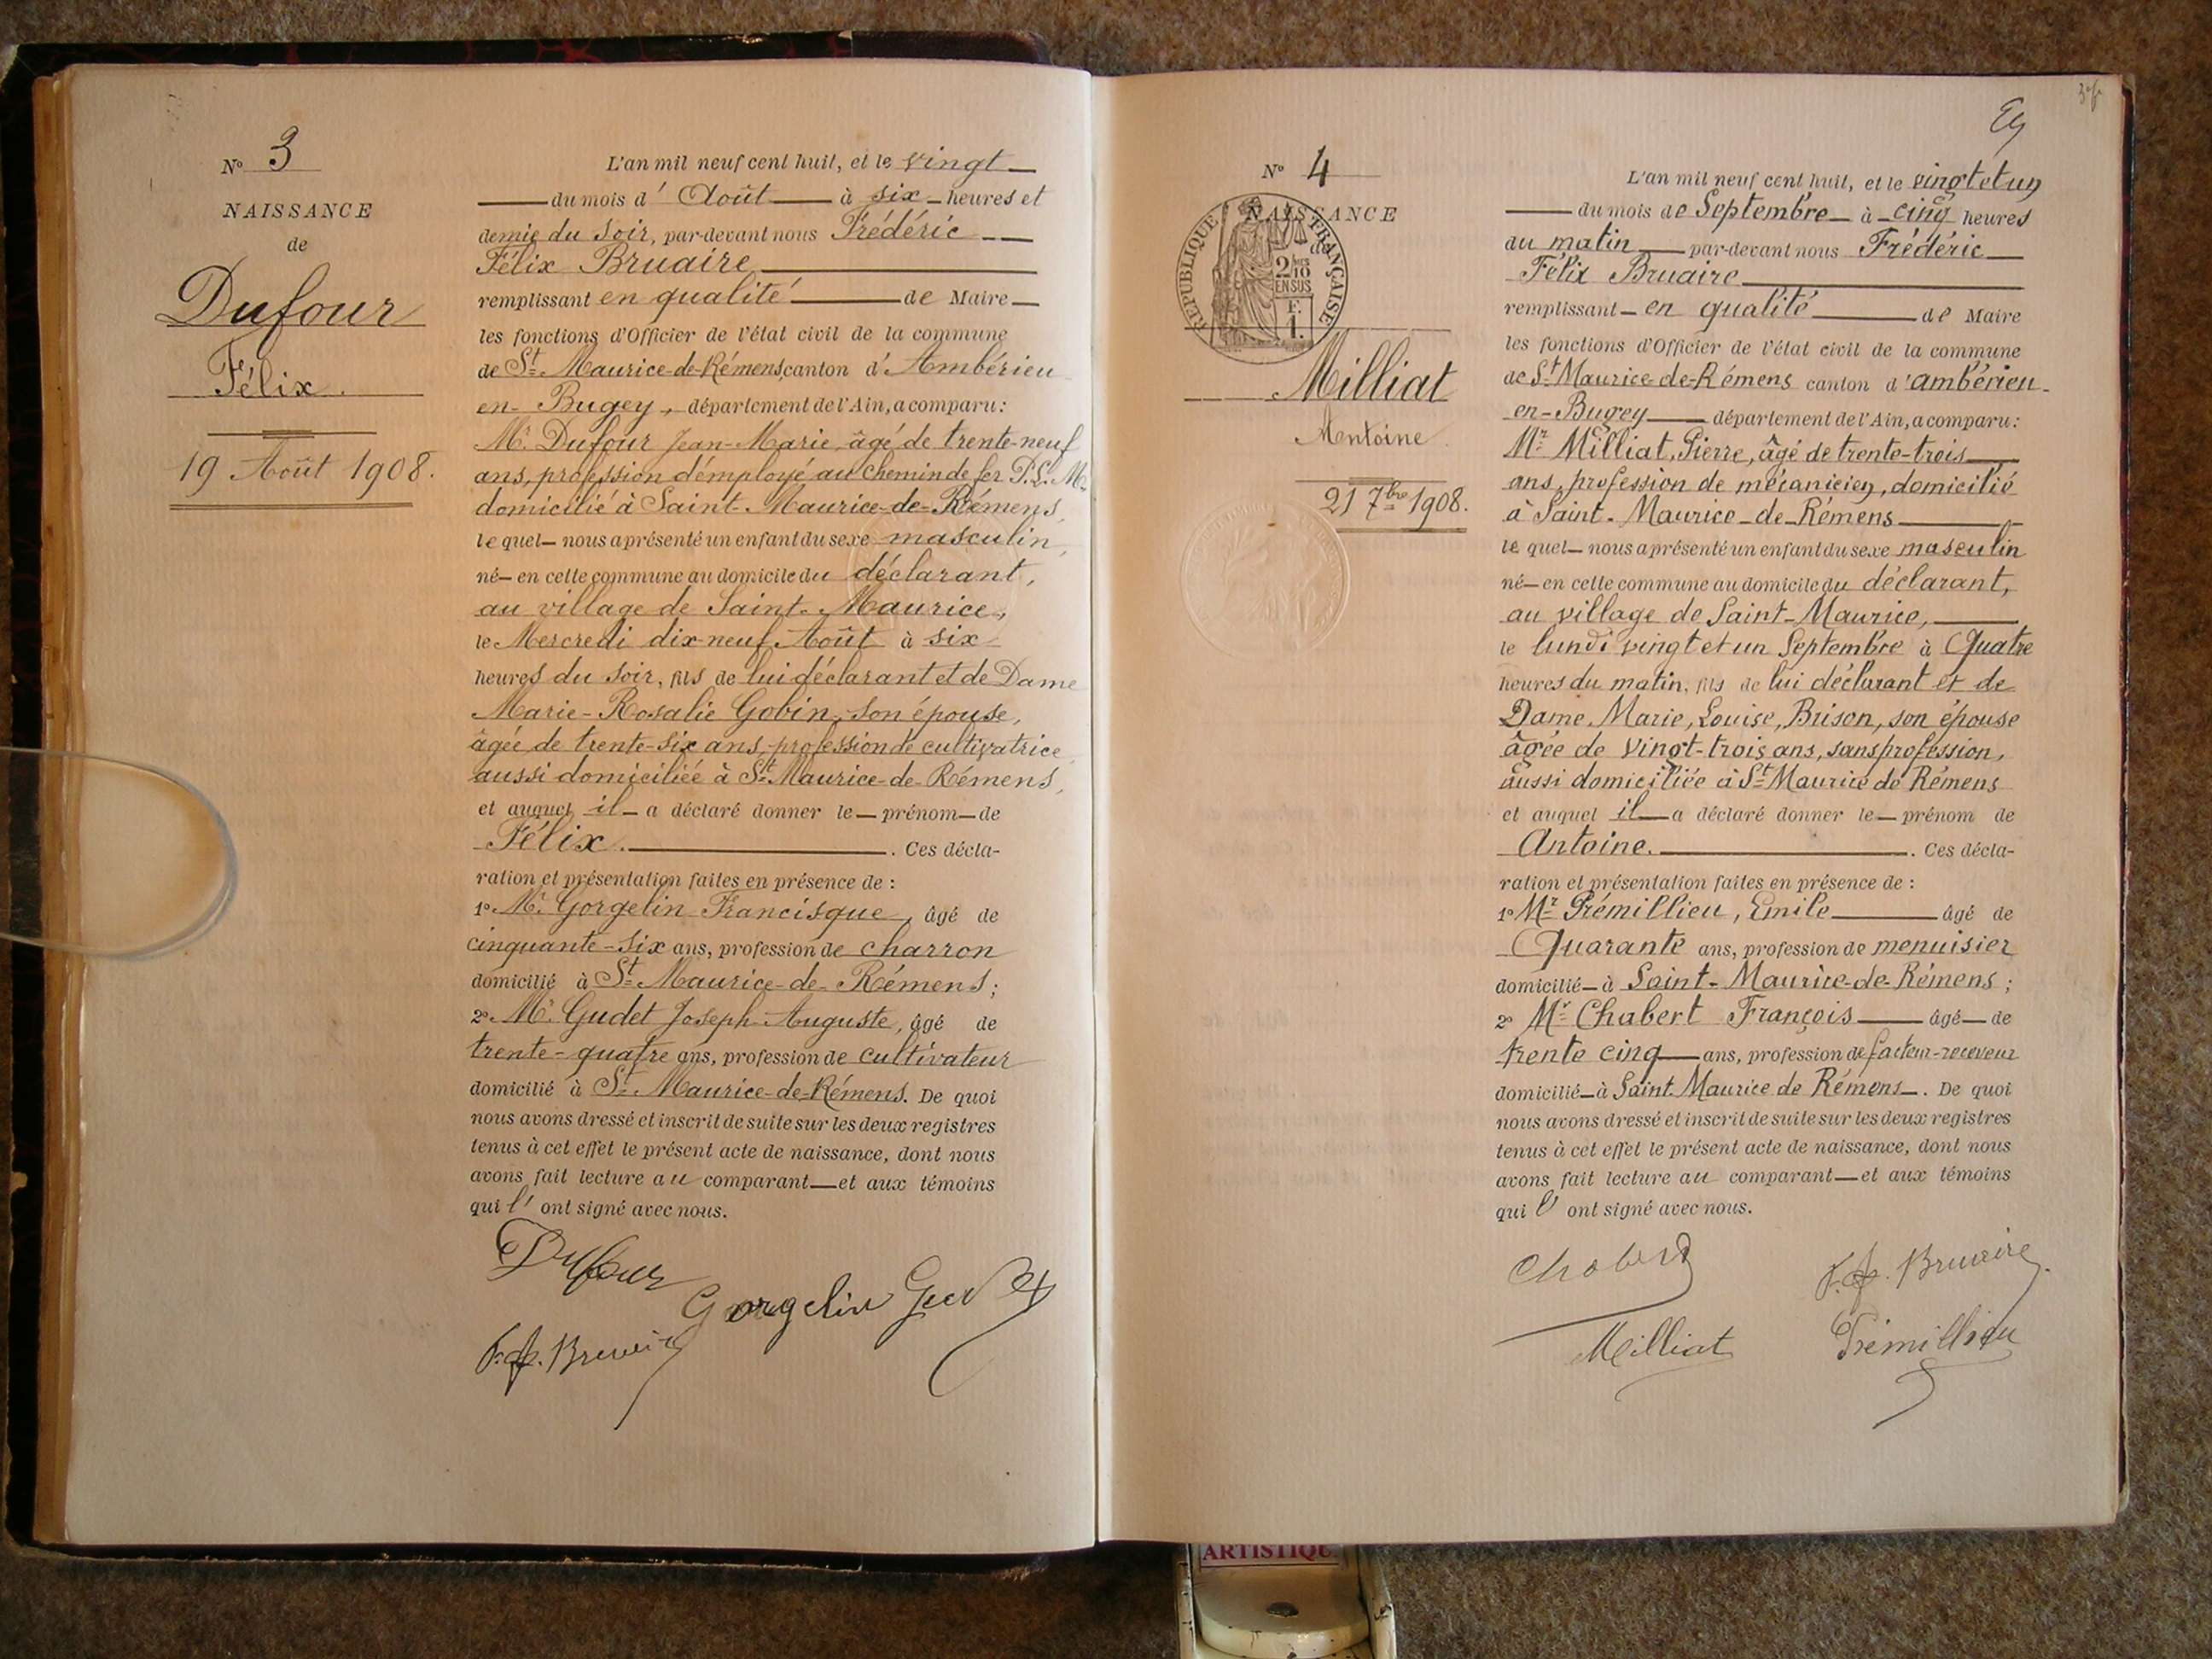 Nº 3
NAISSANCE
de
Dufour
Félix.
19 Août 1908.
L'an mil neuf cent huit, et le vingt
du mois d' Août à six heures et
demie du soir, par-devant nous Frédéric
Félix Bruaire
remplissant en qualité de Maire
les fonctions d'Officier de l'état civil de la commune
de St Maurice-de-Rémens, canton d'Ambérieu
en-Bugey, département de l'Ain, a comparu:
Mr Dufour Jean-Marie, âgé de trente-neuf
ans, profession d'employé au chemin de fer P.L.M.
domicilié à Saint-Maurice-de-Rémens,
lequel nous a présenté un enfant du sexe masculin,
né en cette commune au domicile du déclarant,
au village de Saint-Maurice,
le Mercredi dix-neuf Août à six
heures du soir, fils de lui déclarant et de Dame
Marie-Rosalie Gobin, son épouse,
âgée de trente-six ans, profession de cultivatrice,
aussi domiciliée à St Maurice-de-Rémens,
et auquel il a déclaré donner le prénom de
Félix. . Ces décla-
ration et présentation faites en présence de :
1º Mr Gorgelin Francisque, âgé de
cinquante-six ans, profession de charron
domicilié à St Maurice-de-Rémens;
2º Mr Gudet Joseph-Auguste, âgé de
trente-quatre ans, profession de cultivateur
domicilié à St Maurice-de-Rémens. De quoi
nous avons dressé et inscrit de suite sur les deux registres
tenus à cet effet le présent acte de naissance, dont nous
avons fait lecture au comparant et aux témoins
qui l' ont signé avec nous.
Dufour
Gorgelin Gudet
F. f. Bruaire
Nº 4
NAISSANCE
de
RÉPUBLIQUE FRANÇAISE
2/10
EN SUS
F.
1.
Milliat
Antoine
21 7bre 1908.
L'an mil neuf cent huit, et le vingt et un
du mois de Septembre à cinq heures
du matin par-devant nous Frédéric
Félix Bruaire
remplissant en qualité de Maire
les fonctions d'Officier de l'état civil de la commune
de St Maurice-de-Rémens canton d'ambérieu-
en-Bugey département de l'Ain, a comparu:
Mr Milliat, Pierre, âgé de trente-trois
ans, profession de mécanicien, domicilié
à Saint-Maurice-de-Rémens
lequel nous a présenté un enfant du sexe masculin
né en cette commune au domicile du déclarant,
au village de Saint-Maurice,
le lundi vingt et un Septembre à Quatre
heures du matin, fils de lui déclarant et de
Dame Marie, Louise, Brison, son épouse
âgée de vingt-trois ans, sans profession,
aussi domiciliée à St Maurice de Rémens
et auquel il a déclaré donner le prénom de
Antoine. . Ces décla-
ration et présentation faites en présence de :
1º Mr Prémillieu, Emile âgé de
Quarante ans, profession de menuisier
domicilié à Saint-Maurice-de-Rémens ;
2º Mr Chabert François âgé de
trente cinq ans, profession de facteur-receveur
domicilié à Saint Maurice de Rémens. De quoi
nous avons dressé et inscrit de suite sur les deux registres
tenus à cet effet le présent acte de naissance, dont nous
avons fait lecture au comparant et aux témoins
qui l' ont signé avec nous.
Chabert
F. f. Bruaire
Milliat
Prémillieu
ARTISTIQU